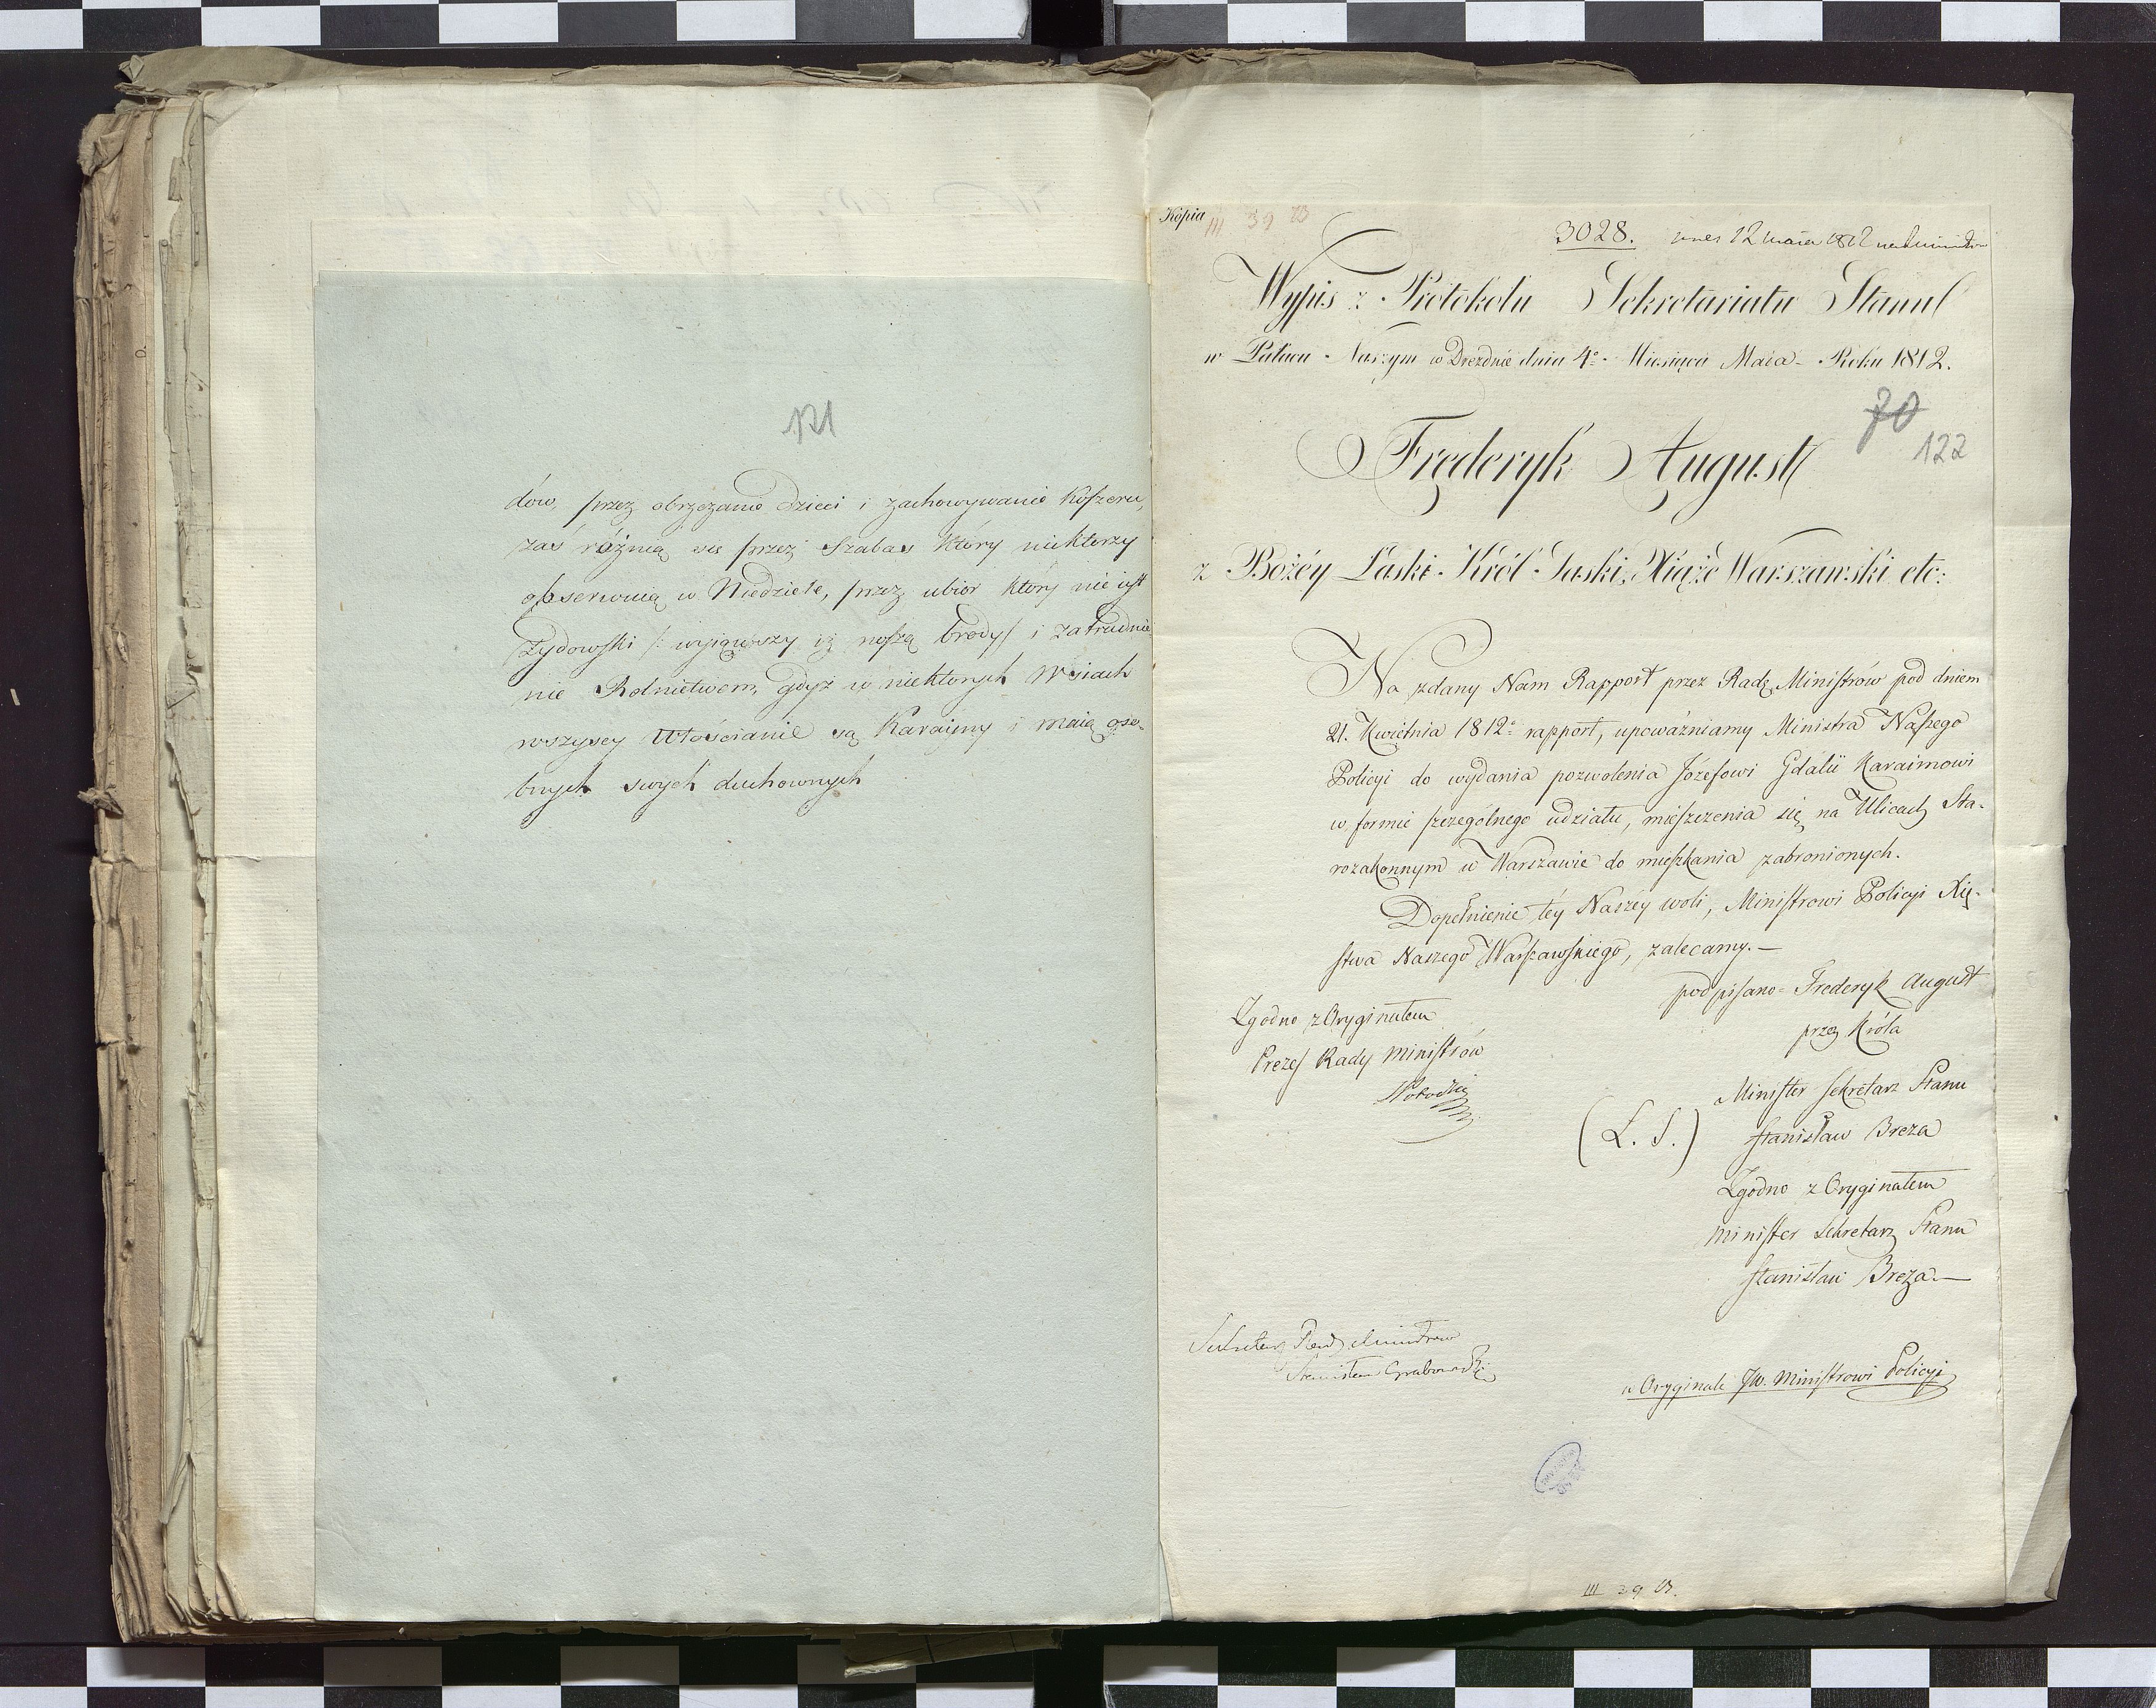 121
dow, przez obrzezanie dzieci i zachowywanie Koszeru,
zaś różnią się przez Szabas który niektorzy
obserwuią w Niedziele, przez ubior ktory nie iest
Zydowski /: wyiąwszy iż noszą brody/ i zatrudnie
nie Rolnictwem, gdyż w niektorych Wsiach
wszyscy Włościanie są Karaimy i maią oso-
bnych swych duchownych
Kopia
III 39 B
3028. 12 maia 1812
Wypis z Protokołu Sekretariatu Stanu
w Pałacu Naszym w Dreźdnie dnia 4º Miesiąca Maia Roku 1812.
70
122
Fręderyk August
z Bożéy Łaski Król Saski, Xiąże Warszawski etc:
Na zdany Nam Rapport przez Radę Ministrów pod dniem
21. Kwietnia 1812º rapport, upoważniamy Ministra Naszego
Policyi do wydania pozwolenia Józefowi Gdalii Karaimowi
w formie szczególnego udziału, mieszczenia się na Ulicach Sta-
rozakonnym w Warszawie do mieszkania zabronionych.
Dopełnienie téy Naszéy woli, Ministrowi Policyi Xię-
stwa Naszego Warszawskiego, zalecamy.—
podpisano= Frederyk August
przez Króla
Zgodno z Oryginałem
Prezes Rady Ministrów
Potocki
Minister Sekretarz Stanu
(L. S.) Stanisław Breza
Zgodno z Oryginałem
Minister Sekretarz Stanu
Stanisław Breza—
Sekretarz Rady Ministrow
Stanisław Grabowski
w Oryginale JW. Ministrowi Policyi
III 39 B.